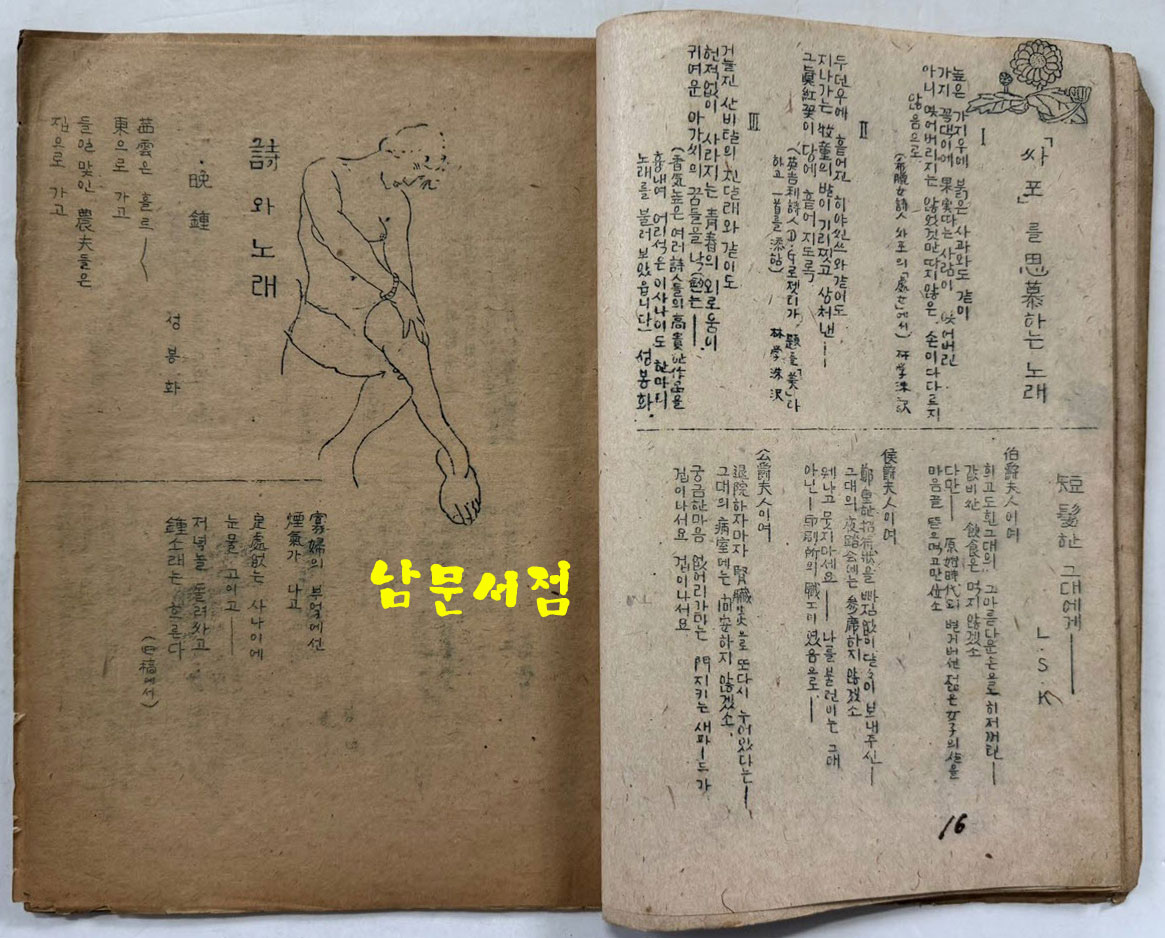 「싸포」를 思慕하는 노래
I
높은 가지우에 붉은 사과와도 같이
가지 꼭대이에 果実따는 사람이 잊어버린
아니 잊어버리지는 않었것만 따지않은, 손이 다다르지
않음으로
(希臘女詩人 싸포의「處女」에서) 林学洙 訳
II
두던우에 흩어진 히야신쓰와 같이도
지나가는 牧童의 발이 기리찢고 상처낸——
그眞紅꽃이 땅에 흩어지도록
(英吉利詩人 D.G로젯티가 題를「美」라
하고 一首를 添) 林学洙 沢
III
거늘진 산비탈의 진달래와 같이도
헌적없이 사라지는 青春의 외로움이
귀여운 아가씨의 꿈들을
(香気높은 여러詩人들의 高貴한作品을
흉내여 어리석은 이사나이도 한마듸
노래를 불러 보았읍니다) 성봉화.
短髮한 그대에게——
L.S.K
伯爵夫人이여
희고도흰그대의 그아름다운손으로 히저꺼린——
값비싼 飮食은 먹지않겠소
다만—— 原始時代의 벌거버선 젊은 女子의 살을
마음끝 뜯으먹고만싶소
侯爵夫人이여
鄭重한招待狀을 빠짐없이 달이 보내주신——
그대의 夜踏会에는 参席하지 않겠소
웨냐고 뭇지마세요—— 나를불런이는 그대
아닌—印刷所의 職工이였음으로——
公爵夫人이여
退院하자마자 腎臓炎으로 또다시 누어있다는——
그대의 病室에는 問安하지 않겠소.
궁금한마음 없어리가마는 門지키는 새파—드가
겁이나서요 겁이나서요
16
詩와 노래
·晩鐘
성봉화
茜雲은 흘르——
東으로 가고
들일 맟인 農夫들은
집으로 가고
寡婦의 부엌에선
煙氣가 나고
定處없는 사나이에
눈물 고이고——
저녁놀 둘러싸고
鐘소래는 흐른다
(旧稿에서)
남문서점